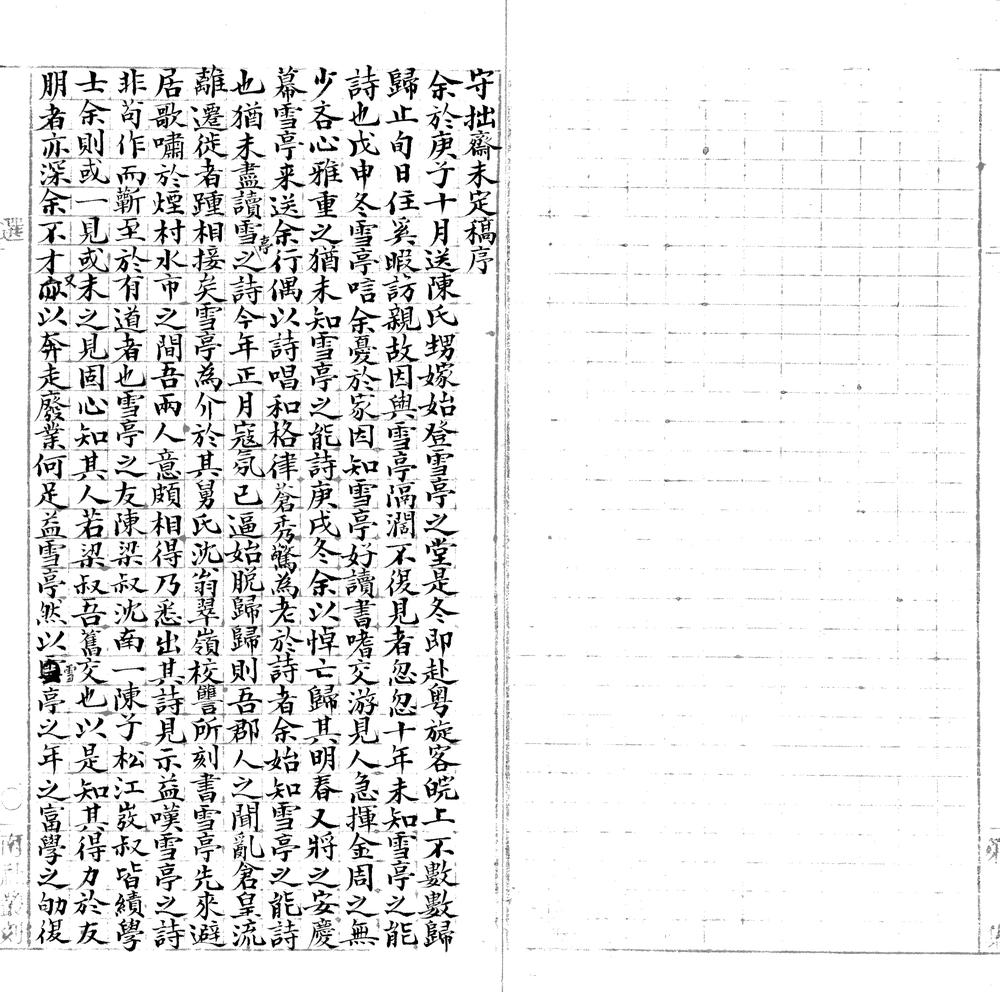 守拙齋未定稿序
余於庚子十月送陳氏甥嫁始登雪亭之堂是冬即赴粵旋客皖上不數數歸
歸止旬日住奚暇訪親故因與雪亭隔濶不復見者忽忽十年未知雪亭之能
詩也戊申冬雪亭唁余憂於家因知雪亭好讀書嗜交游見人急揮金周之無
少吝心雅重之猶未知雪亭之能詩庚戌冬余以悼亡歸其明春又將之安慶
幕雪亭来送余行偶以詩唱和格律蒼秀驚為老於詩者余始知雪亭之能詩
也猶未盡讀雪亭之詩今年正月寇氛已逼始脫歸歸則吾郡人之聞亂倉皇流
離遷徙者踵相接矣雪亭為介於其舅氏沈翁翠嶺校讐所刻書雪亭先來避
居歌嘯於煙村水市之間吾兩人意頗相得乃悉出其詩見示益嘆雪亭之詩
非苟作而蘄至於有道者也雪亭之友陳梁叔沈南一陳子松江弢叔皆績學
士余則或一見或未之見固心知其人若梁叔吾舊交也以是知其得力於友
朋者亦深余不才又以奔走廢業何足益雪亭然以雪亭之年之富學之劬復
選